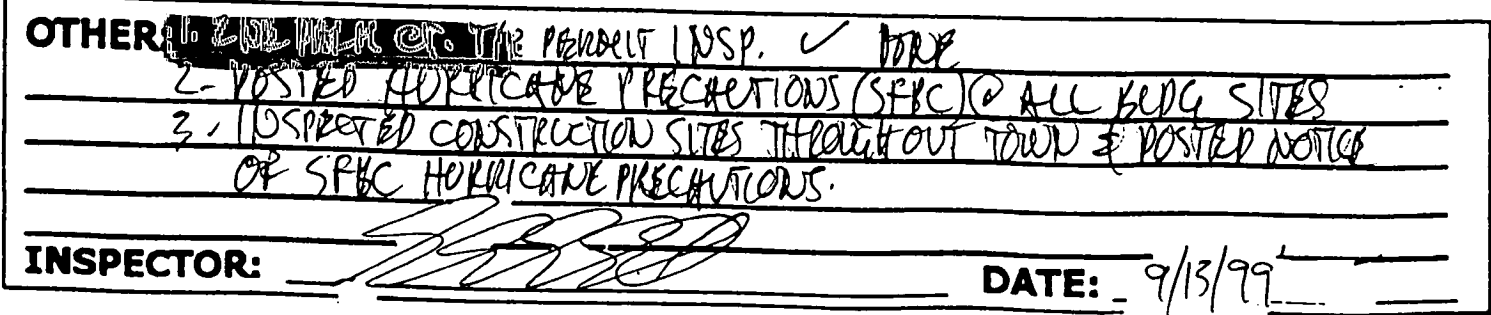 OTHER: 1. PALM CT. TREE PERMIT INSP. ✓ DONE
2- POSTED HURRICANE PRECAUTIONS (SFBC) @ ALL BLDG SITES
3. INSPECTED CONSTRUCTION SITES THROUGHOUT TOWN & POSTED NOTICE
OF SFBC HURRICANE PRECAUTIONS.
INSPECTOR: DATE: 9/13/99